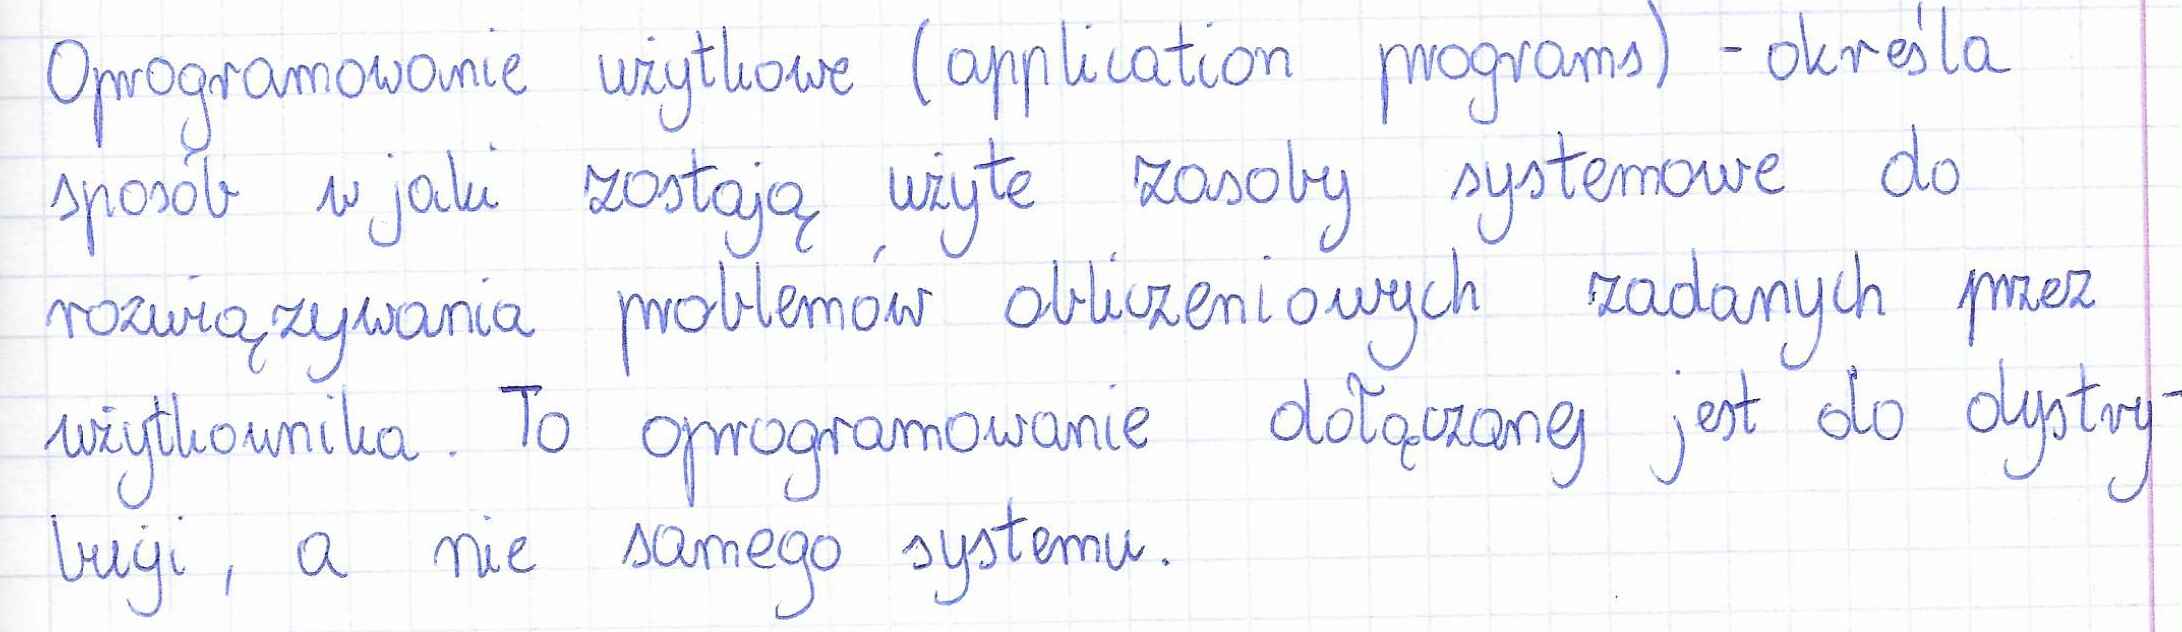 Oprogramowanie użytkowe (application programs) - określa
sposób w jaki zostają użyte zasoby systemowe do
rozwiązywania problemów obliczeniowych zadanych przez
użytkownika. To oprogramowanie dołączane jest do dystry-
bucji, a nie samego systemu.